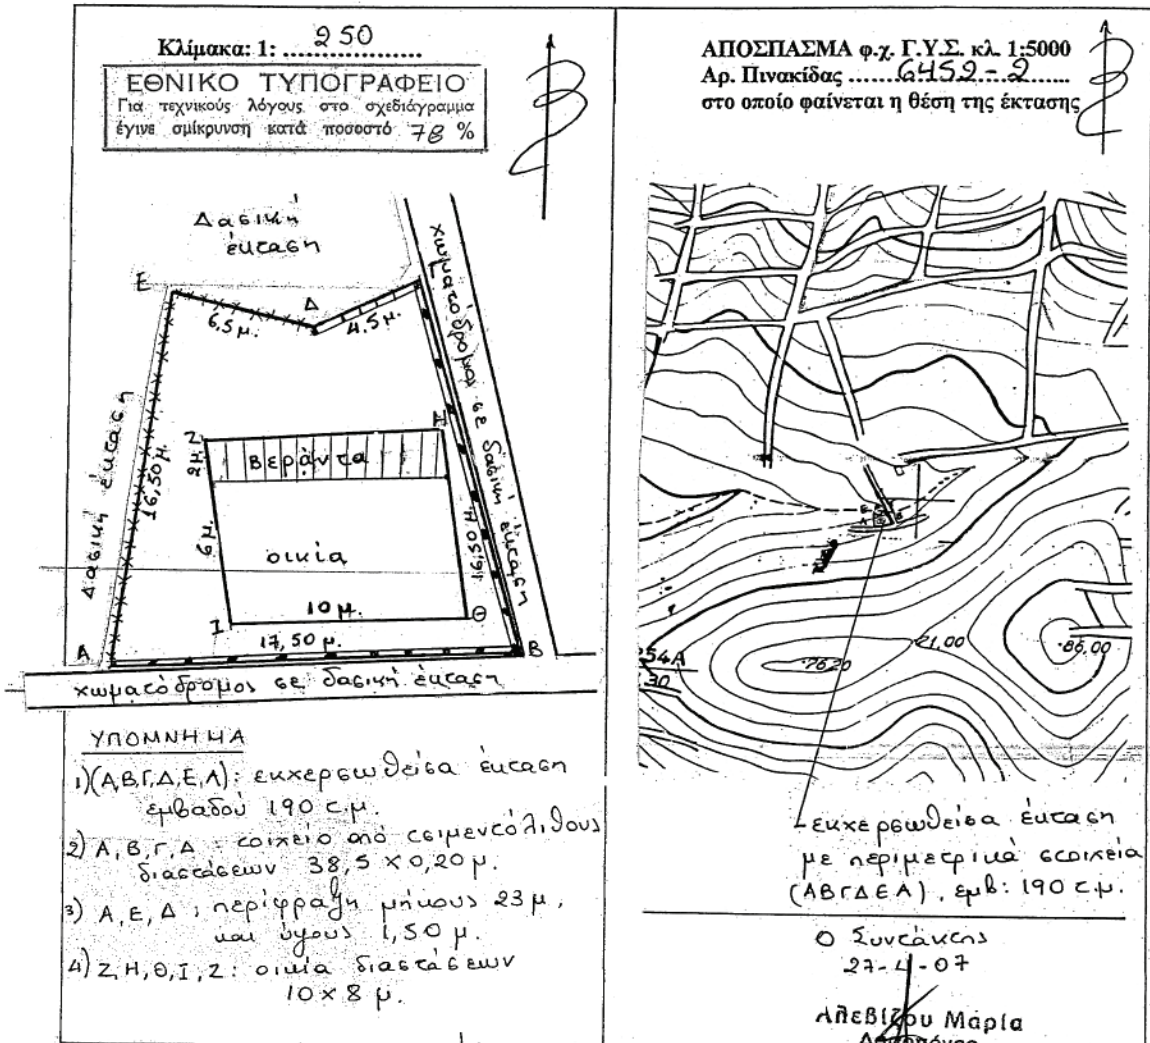 Κλίμακα: 1: 250
ΕΘΝΙΚΟ ΤΥΠΟΓΡΑΦΕΙΟ
Για τεχνικούς λόγους στο σχεδιάγραμμα
έγινε σμίκρυνση κατά ποσοστό 78 %
Δασική
έκταση
Ε
6,5 μ.
Δ
4.5 μ.
Γ
χωματόδρομος σε δασική έκταση
Δασική έκταση
16,50 μ.
Ζ
Η
2 μ.
Βεράντα
6 μ.
οικία
16,50 μ.
10 μ.
Ι
Θ
17,50 μ.
Α
Β
χωματόδρομος σε δασική έκταση
ΥΠΟΜΝΗΜΑ
1) (Α,Β,Γ,Δ,Ε,Α): εκχερσωθείσα έκταση
εμβαδού 190 τ.μ.
2) Α, Β, Γ, Δ = τοιχείο από τσιμεντόλιθους
διαστάσεων 38,5 Χ 0,20 μ.
3) Α, Ε, Δ : περίφραξη μήκους 23 μ,
και ύψους 1,50 μ.
4) Ζ, Η, Θ, Ι, Ζ: οικία διαστάσεων
10 × 8 μ.
ΑΠΟΣΠΑΣΜΑ φ.χ. Γ.Υ.Σ. κλ. 1:5000
Αρ. Πινακίδας 6452-2
στο οποίο φαίνεται η θέση της έκτασης
254Α
30
·76,20
21,00
·86,00
εκχερσωθείσα έκταση
με περιμετρικά στοιχεία
(ΑΒΓΔΕΑ), εμβ: 190 τ.μ.
Ο Συντάκτης
27-4-07
Αλεβίζου Μαρία